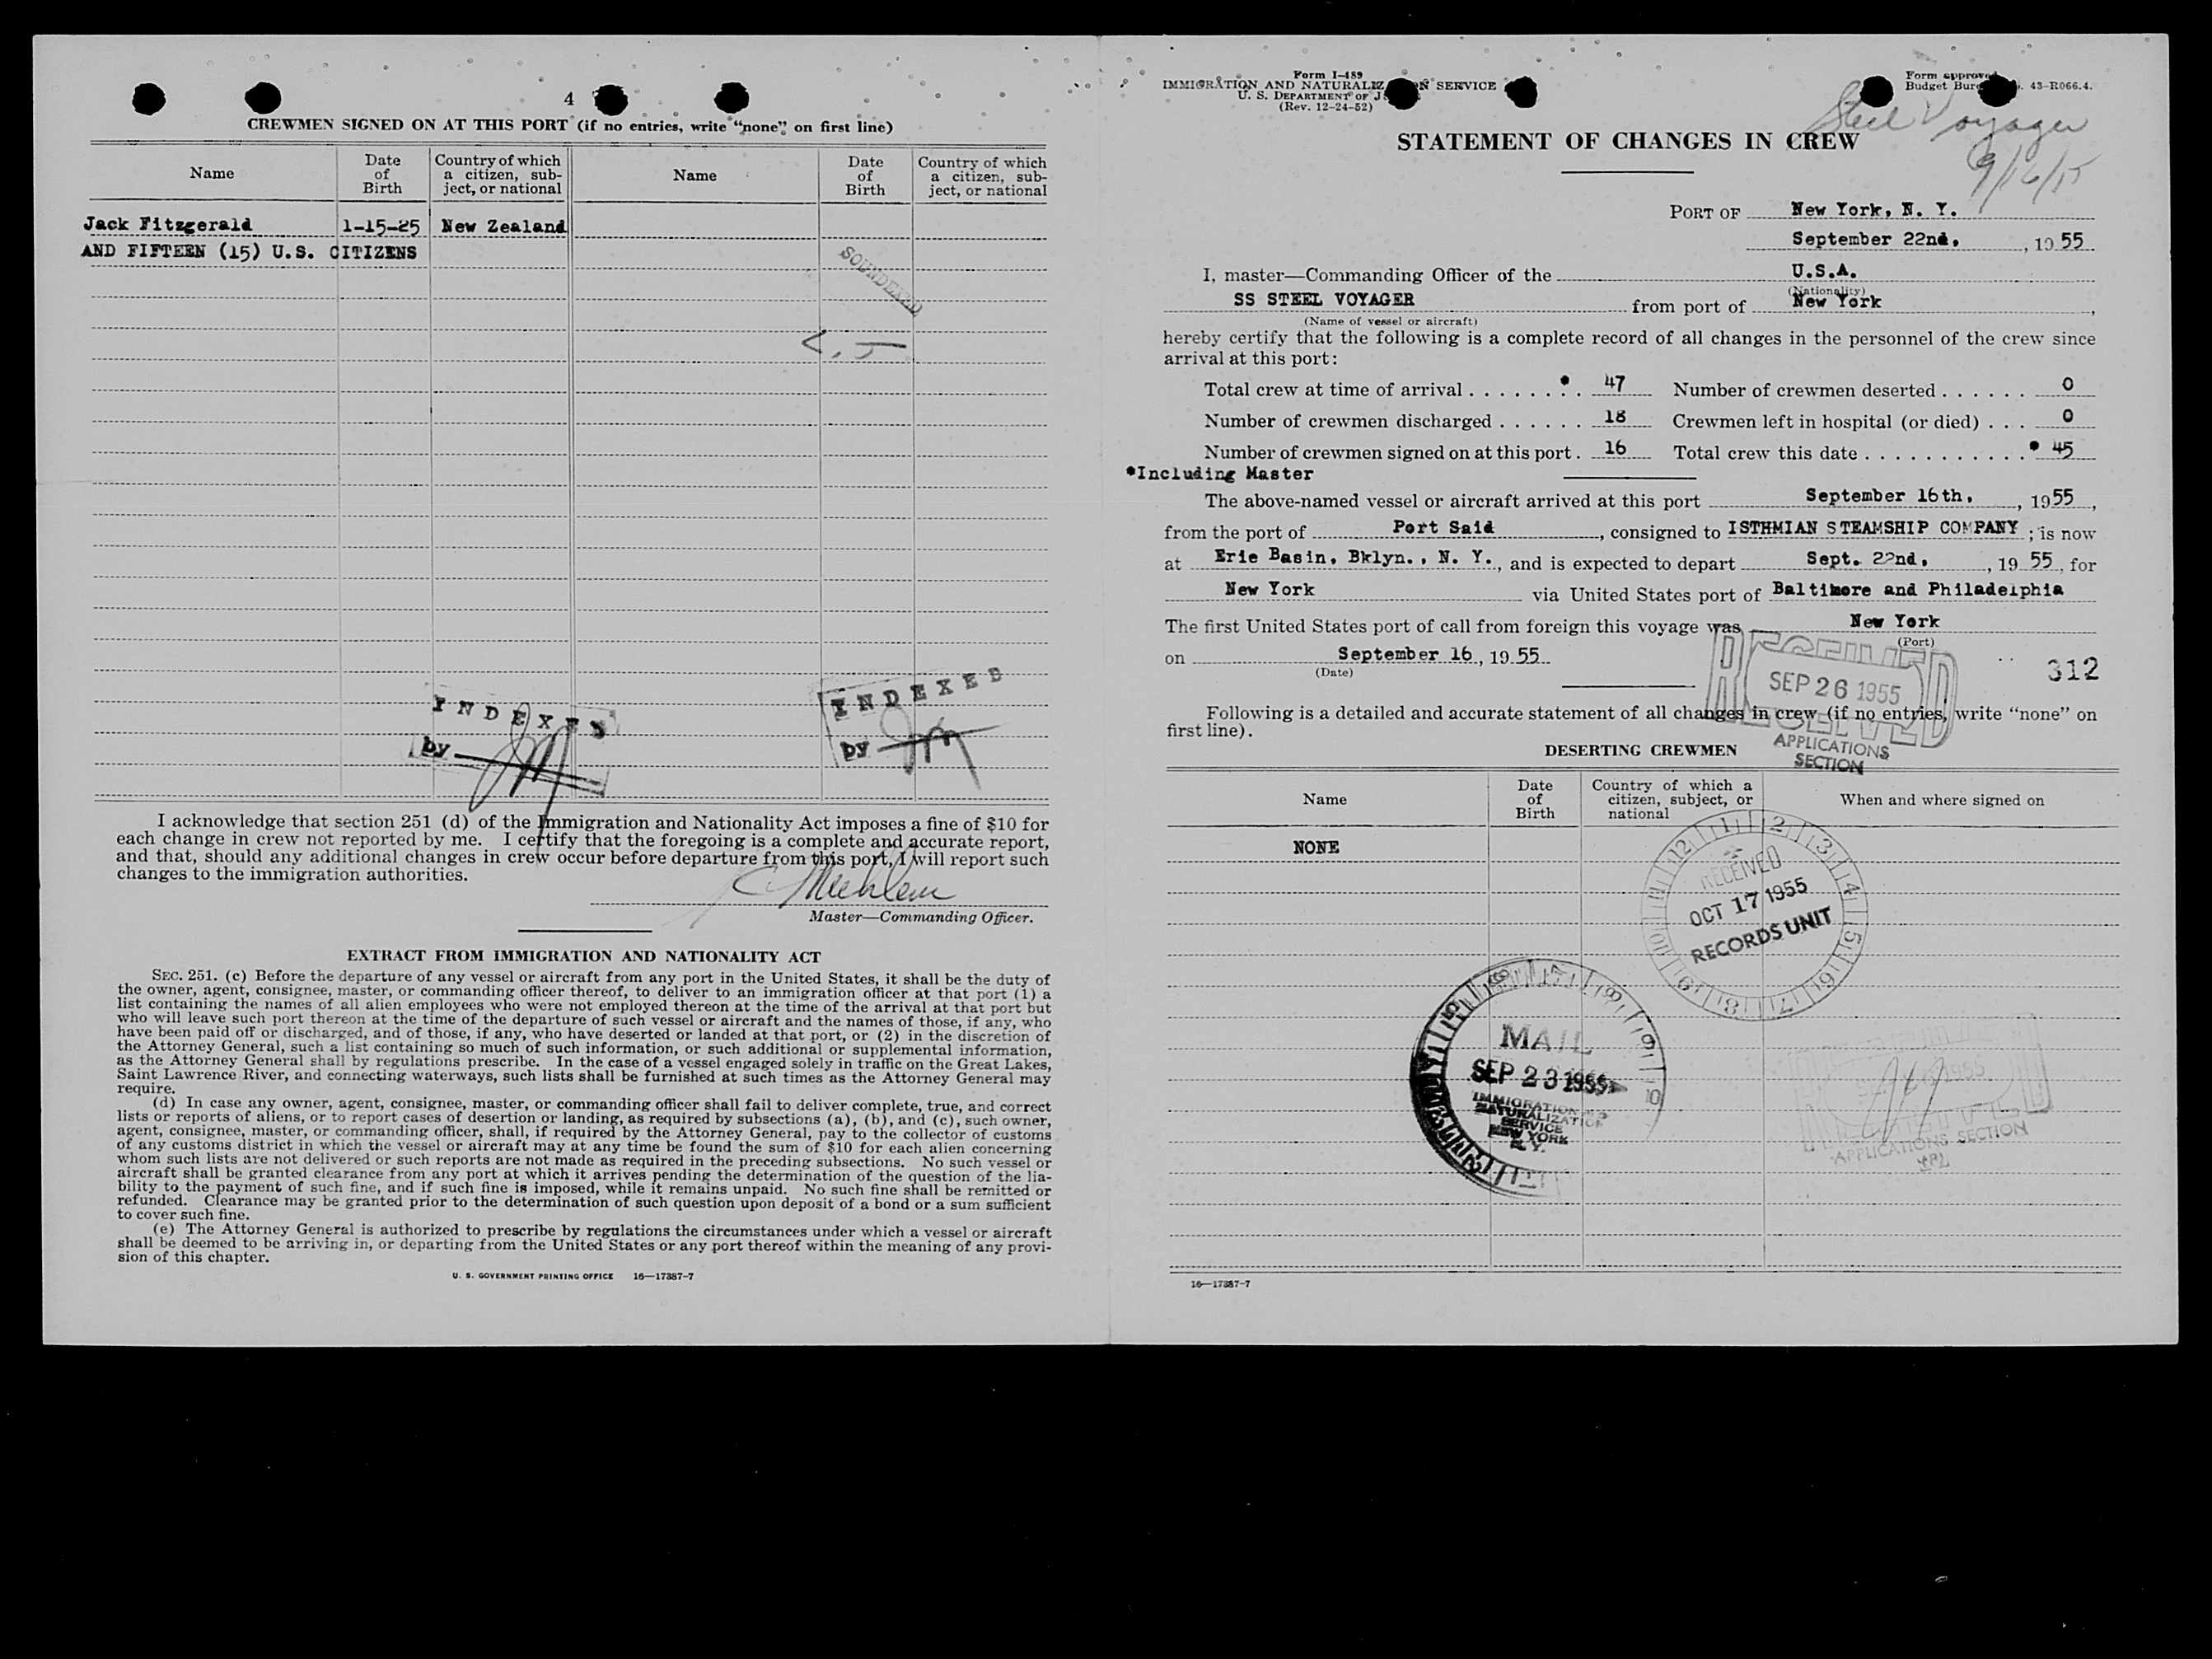 4
CREWMEN SIGNED ON AT THIS PORT (if no entries, write "none" on first line)
Name Date of Birth Country of which a citizen, subject, or national Name Date of Birth Country of which a citizen, subject, or national
Jack Fitzgerald 1-15-25 New Zealand
AND FIFTEEN (15) U.S. CITIZENS
SOUNDEXED
INDEXED
by
INDEXED
by
I acknowledge that section 251 (d) of the Immigration and Nationality Act imposes a fine of $10 for
each change in crew not reported by me. I certify that the foregoing is a complete and accurate report,
and that, should any additional changes in crew occur before departure from this port, I will report such
changes to the immigration authorities.
Master—Commanding Officer.
EXTRACT FROM IMMIGRATION AND NATIONALITY ACT
SEC. 251. (c) Before the departure of any vessel or aircraft from any port in the United States, it shall be the duty of
the owner, agent, consignee, master, or commanding officer thereof, to deliver to an immigration officer at that port (1) a
list containing the names of all alien employees who were not employed thereon at the time of the arrival at that port but
who will leave such port thereon at the time of the departure of such vessel or aircraft and the names of those, if any, who
have been paid off or discharged, and of those, if any, who have deserted or landed at that port, or (2) in the discretion of
the Attorney General, such a list containing so much of such information, or such additional or supplemental information,
as the Attorney General shall by regulations prescribe. In the case of a vessel engaged solely in traffic on the Great Lakes,
Saint Lawrence River, and connecting waterways, such lists shall be furnished at such times as the Attorney General may
require.
(d) In case any owner, agent, consignee, master, or commanding officer shall fail to deliver complete, true, and correct
lists or reports of aliens, or to report cases of desertion or landing, as required by subsections (a), (b), and (c), such owner,
agent, consignee, master, or commanding officer, shall, if required by the Attorney General, pay to the collector of customs
of any customs district in which the vessel or aircraft may at any time be found the sum of $10 for each alien concerning
whom such lists are not delivered or such reports are not made as required in the preceding subsections. No such vessel or
aircraft shall be granted clearance from any port at which it arrives pending the determination of the question of the lia-
bility to the payment of such fine, and if such fine is imposed, while it remains unpaid. No such fine shall be remitted or
refunded. Clearance may be granted prior to the determination of such question upon deposit of a bond or a sum sufficient
to cover such fine.
(e) The Attorney General is authorized to prescribe by regulations the circumstances under which a vessel or aircraft
shall be deemed to be arriving in, or departing from the United States or any port thereof within the meaning of any provi-
sion of this chapter.
U. S. GOVERNMENT PRINTING OFFICE 16—17387-7
Form I-489
IMMIGRATION AND NATURALIZ N SERVICE
U. S. DEPARTMENT OF J
(Rev. 12-24-52)
Form approved
Budget Bur 43-R066.4.
Steel Voyager
9/16/55
STATEMENT OF CHANGES IN CREW
PORT OF New York, N. Y.
September 22nd, , 19 55
I, master—Commanding Officer of the U.S.A.
(Nationality)
SS STEEL VOYAGER from port of New York ,
(Name of vessel or aircraft)
hereby certify that the following is a complete record of all changes in the personnel of the crew since
arrival at this port:
Total crew at time of arrival . . . . . . . * 47 Number of crewmen deserted . . . . . . 0
Number of crewmen discharged . . . . . . 18 Crewmen left in hospital (or died) . . . 0
Number of crewmen signed on at this port . 16 Total crew this date . . . . . . . . . . . * 45
*Including Master
The above-named vessel or aircraft arrived at this port September 16th, , 1955 ,
from the port of Port Said , consigned to ISTHMIAN STEAMSHIP COMPANY ; is now
at Erie Basin, Bklyn., N. Y. , and is expected to depart Sept. 22nd, , 19 55 , for
New York via United States port of Baltimore and Philadelphia
The first United States port of call from foreign this voyage was New York
(Port)
on September 16 , 19 55
(Date)
312
RECEIVED
SEP 26 1955
RECEIVED
APPLICATIONS
SECTION
Following is a detailed and accurate statement of all changes in crew (if no entries, write "none" on
first line).
DESERTING CREWMEN
Name Date of Birth Country of which a citizen, subject, or national When and where signed on
NONE
RECEIVED
OCT 17 1955
RECORDS UNIT
MAIL
SEP 23 1955
IMMIGRATION
NATURALIZATION
SERVICE
NEW YORK
N. Y.
APPLICATIONS SECTION
16—17387-7